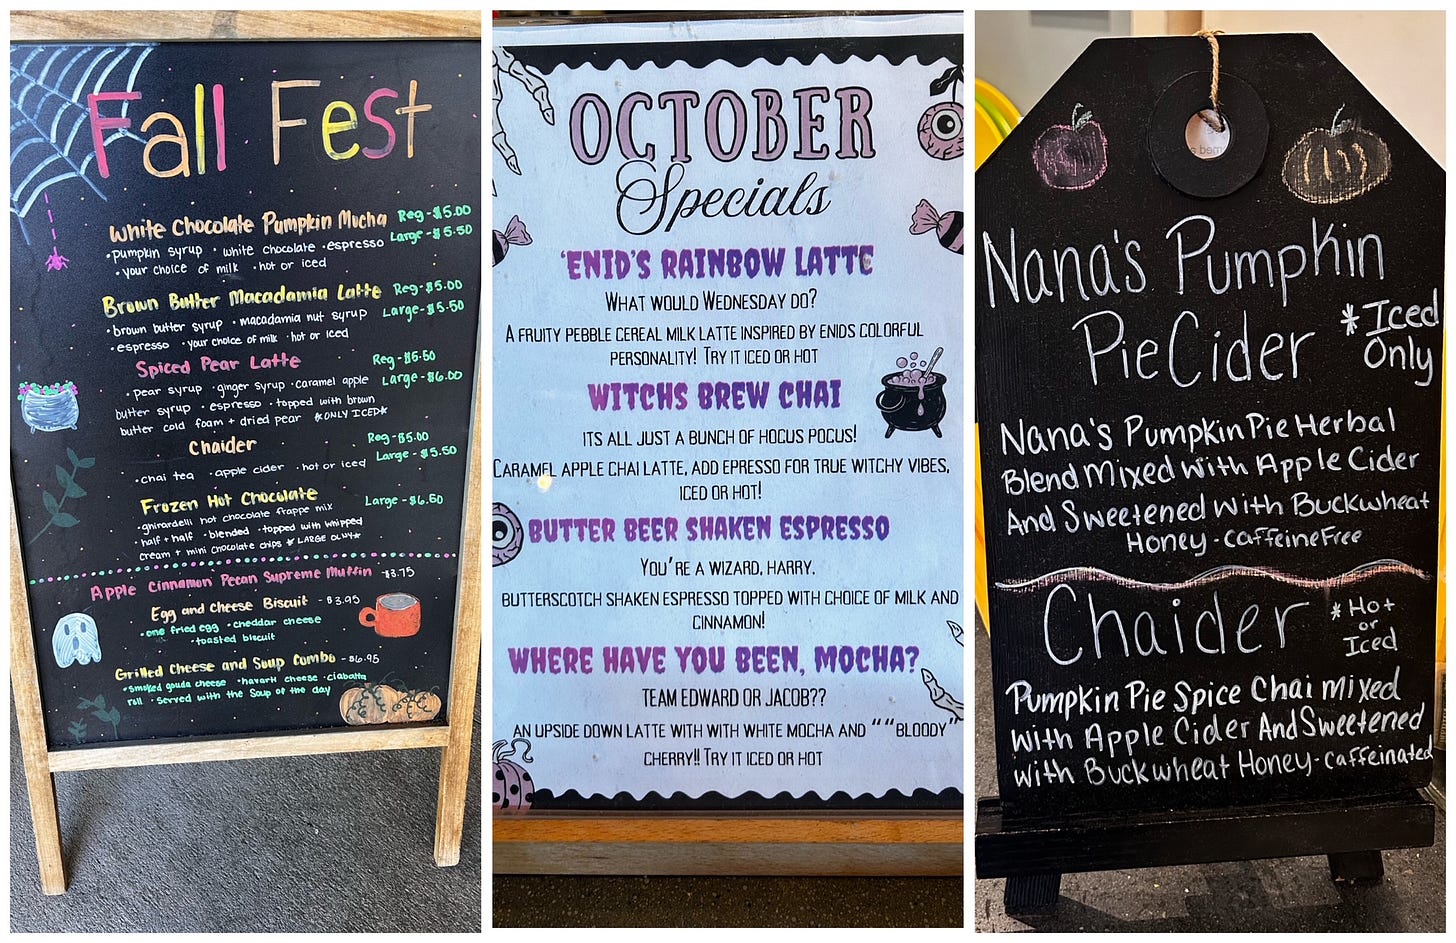 Fall Fest
White Chocolate Pumpkin Mocha Reg - $5.00
•pumpkin syrup •white chocolate •espresso Large - $5.50
•your choice of milk •hot or iced
Brown Butter Macadamia Latte Reg - $5.00
•brown butter syrup •macadamia nut syrup Large - $5.50
•espresso •your choice of milk •hot or iced
Spiced Pear Latte Reg - $5.50
•pear syrup •ginger syrup •caramel apple Large - $6.00
butter syrup •espresso •topped with brown
butter cold foam + dried pear *ONLY ICED*
Chaider Reg - $5.00
•chai tea •apple cider •hot or iced Large - $5.50
Frozen Hot Chocolate Large - $6.50
•ghirardelli hot chocolate frappe mix
•half + half •blended •topped with whipped
cream + mini chocolate chips *LARGE OLNY*
Apple Cinnamon Pecan Supreme Muffin - $3.75
Egg and Cheese Biscuit - $3.95
•one fried egg •cheddar cheese
•toasted biscuit
Grilled Cheese and Soup Combo - $6.95
•smoked gouda cheese •havarti cheese •ciabatta
roll •Served with the Soup of the day
OCTOBER
Specials
'ENID'S RAINBOW LATTE
WHAT WOULD WEDNESDAY DO?
A FRUITY PEBBLE CEREAL MILK LATTE INSPIRED BY ENIDS COLORFUL
PERSONALITY! TRY IT ICED OR HOT
WITCHS BREW CHAI
ITS ALL JUST A BUNCH OF HOCUS POCUS!
CARAMEL APPLE CHAI LATTE, ADD EPRESSO FOR TRUE WITCHY VIBES,
ICED OR HOT!
BUTTER BEER SHAKEN ESPRESSO
YOU'RE A WIZARD, HARRY.
BUTTERSCOTCH SHAKEN ESPRESSO TOPPED WITH CHOICE OF MILK AND
CINNAMON!
WHERE HAVE YOU BEEN, MOCHA?
TEAM EDWARD OR JACOB??
AN UPSIDE DOWN LATTE WITH WITH WHITE MOCHA AND ““BLOODY”
CHERRY!! TRY IT ICED OR HOT
Nana's Pumpkin
Pie Cider *Iced
Only
Nana's Pumpkin Pie Herbal
Blend Mixed with Apple Cider
And Sweetened with Buckwheat
Honey - caffeine Free
Chaider *Hot
or
Iced
Pumpkin Pie Spice Chai mixed
with Apple Cider And Sweetened
with Buckwheat Honey - caffeinated